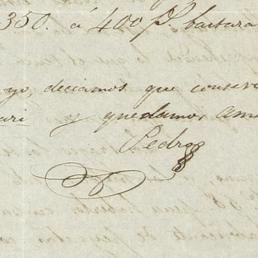 350. á 400 p.s bastara
yo, deciamos que conserv
ari y quedamos ami
Pedro